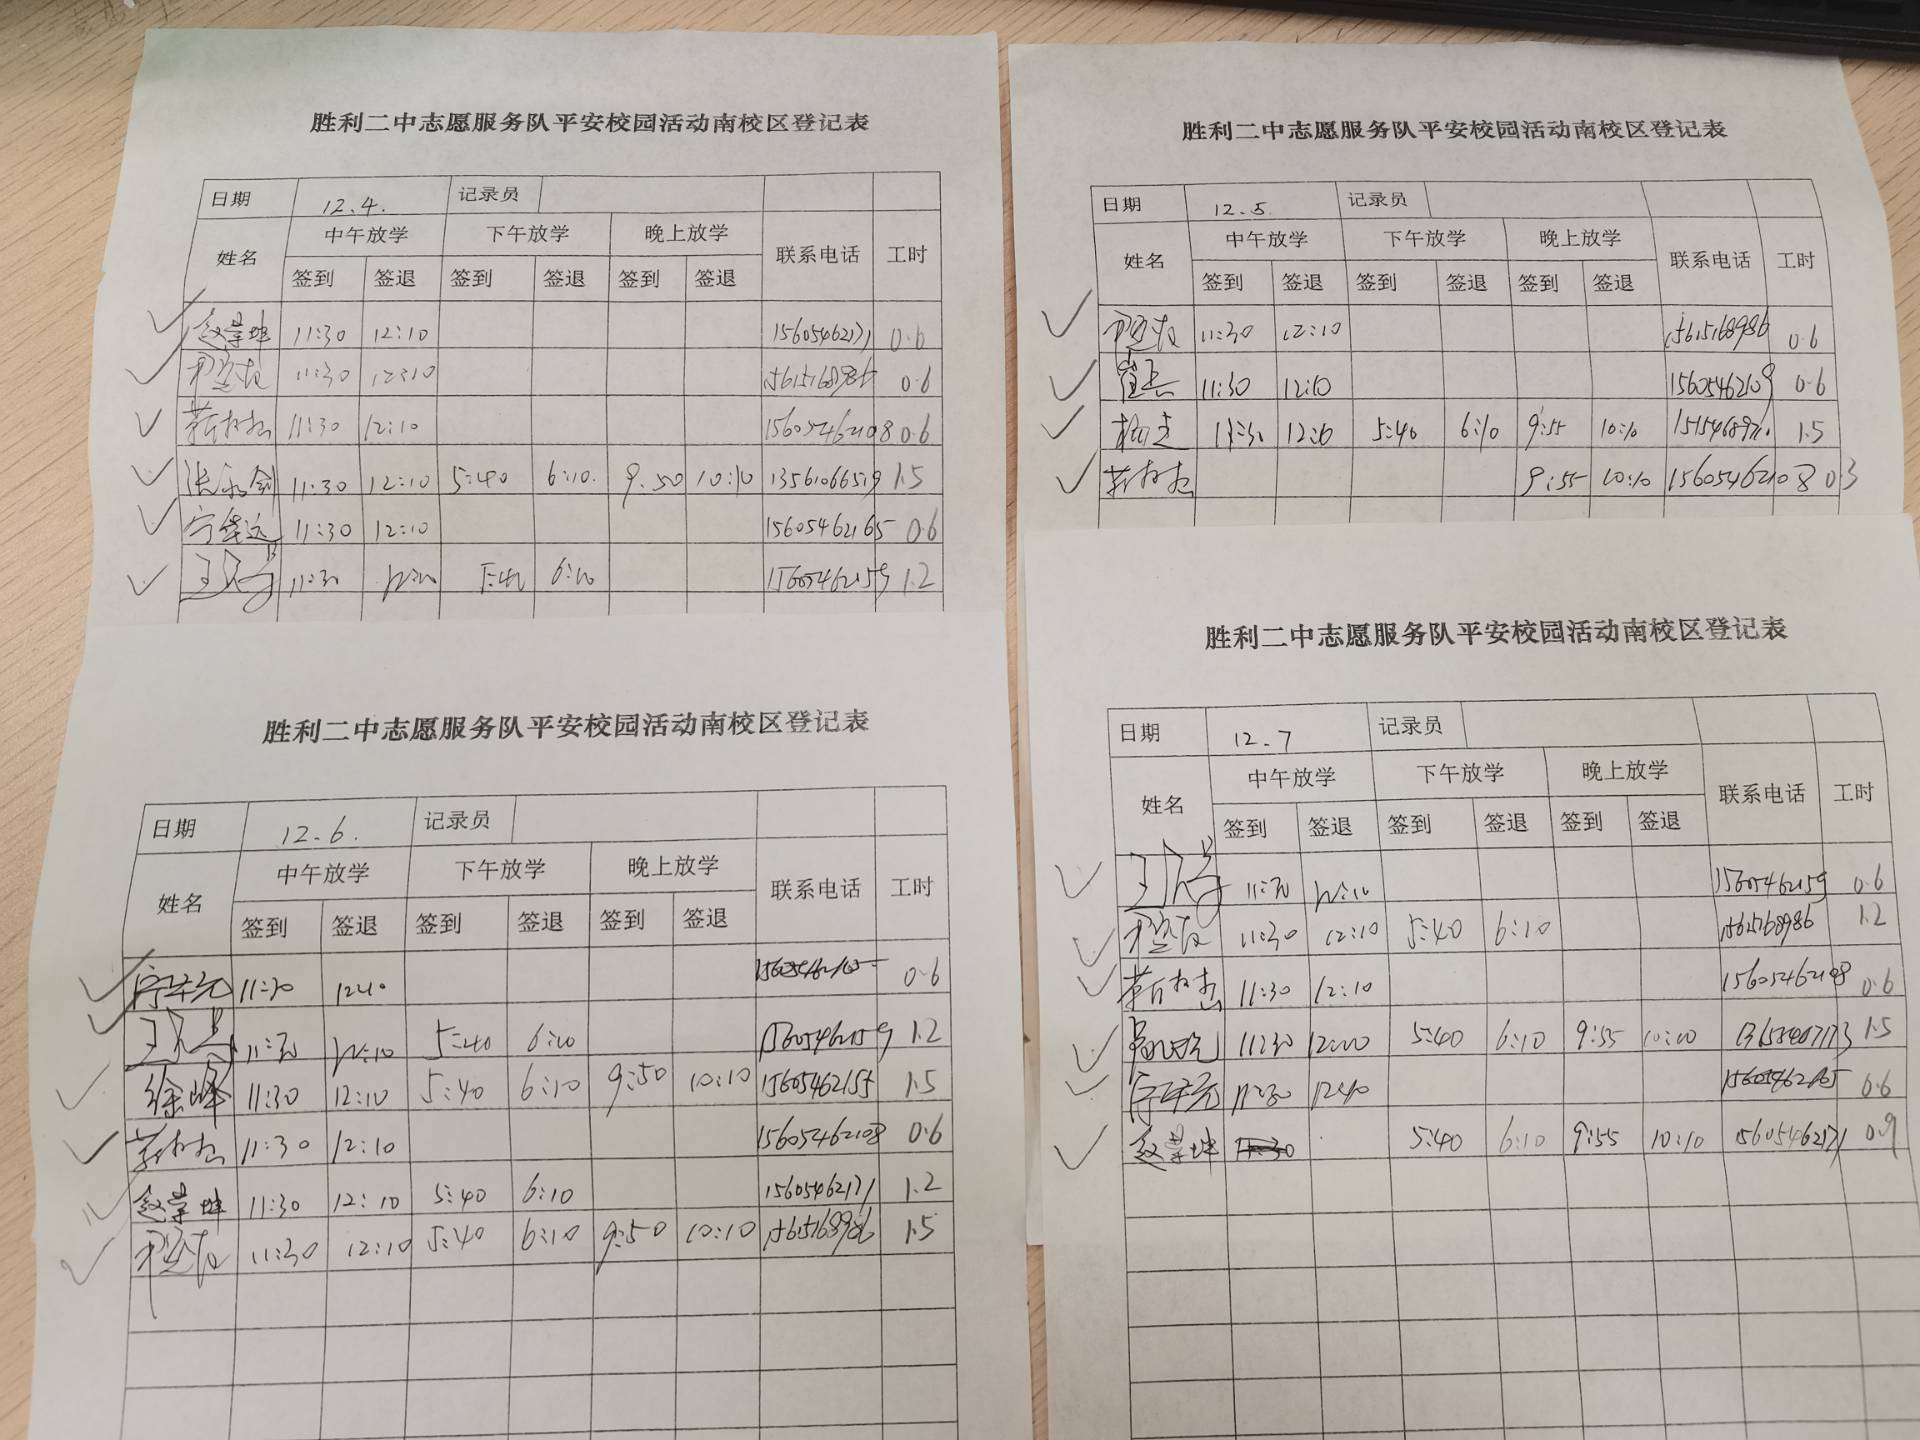 胜利二中志愿服务队平安校园活动南校区登记表
日期 12.4. 记录员
姓名 中午放学 下午放学 晚上放学 联系电话 工时
签到 签退 签到 签退 签到 签退
11:30 12:10 15605462171 0.6
11:30 12:10 15615168986 0.6
11:30 12:10 15605462108 0.6
张永剑 11:30 12:10 5:40 6:10. 9:50 10:10 13561066519 1.5
11:30 12:10 15605462165 0.6
11:30 5:40 6:10 15605462159 1.2
胜利二中志愿服务队平安校园活动南校区登记表
日期 12.5. 记录员
姓名 中午放学 下午放学 晚上放学 联系电话 工时
签到 签退 签到 签退 签到 签退
11:30 12:10 15615168986 0.6
11:30 12:10 15605462109 0.6
11:30 12:10 5:40 6:10 9:55 10:10 1.5
9:55 10:10 15605462108 0.3
胜利二中志愿服务队平安校园活动南校区登记表
日期 12.6. 记录员
姓名 中午放学 下午放学 晚上放学 联系电话 工时
签到 签退 签到 签退 签到 签退
11:30 12:10 0.6
11:30 12:10 5:40 6:10 15605462159 1.2
徐峰 11:30 12:10 5:40 6:10 9:50 10:10 15605462155 1.5
11:30 12:10 15605462108 0.6
11:30 12:10 5:40 6:10 15605462171 1.2
11:30 12:10 5:40 6:10 9:50 10:10 15615168986 1.5
胜利二中志愿服务队平安校园活动南校区登记表
日期 12.7 记录员
姓名 中午放学 下午放学 晚上放学 联系电话 工时
签到 签退 签到 签退 签到 签退
11:30 12:10 15605462159 0.6
11:30 12:10 5:40 6:10 15615168986 1.2
11:30 12:10 15605462108 0.6
11:30 5:40 6:10 9:55 1.5
11:30 12:10 0.6
5:40 6:10 9:55 10:10 15605462171 0.9